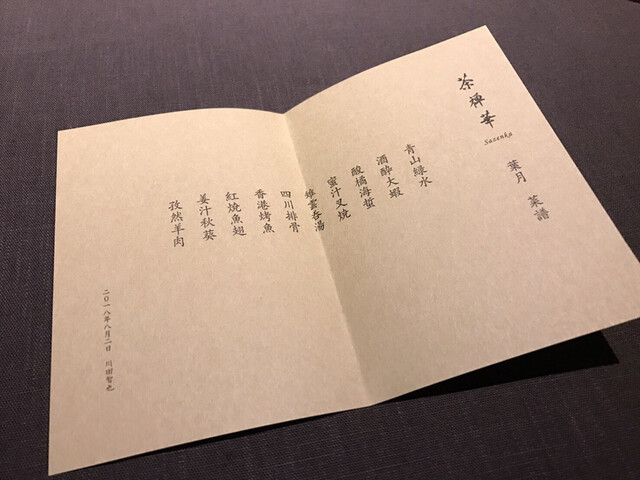 茶禅華
Sazenka
葉月 菜譜
青山緑水
酒酔大蝦
酸橘海蜇
蜜汁叉焼
雉雲呑湯
四川排骨
香港烤魚
紅焼魚翅
姜汁秋葵
孜然羊肉
二〇一八年八月二日 川田智也